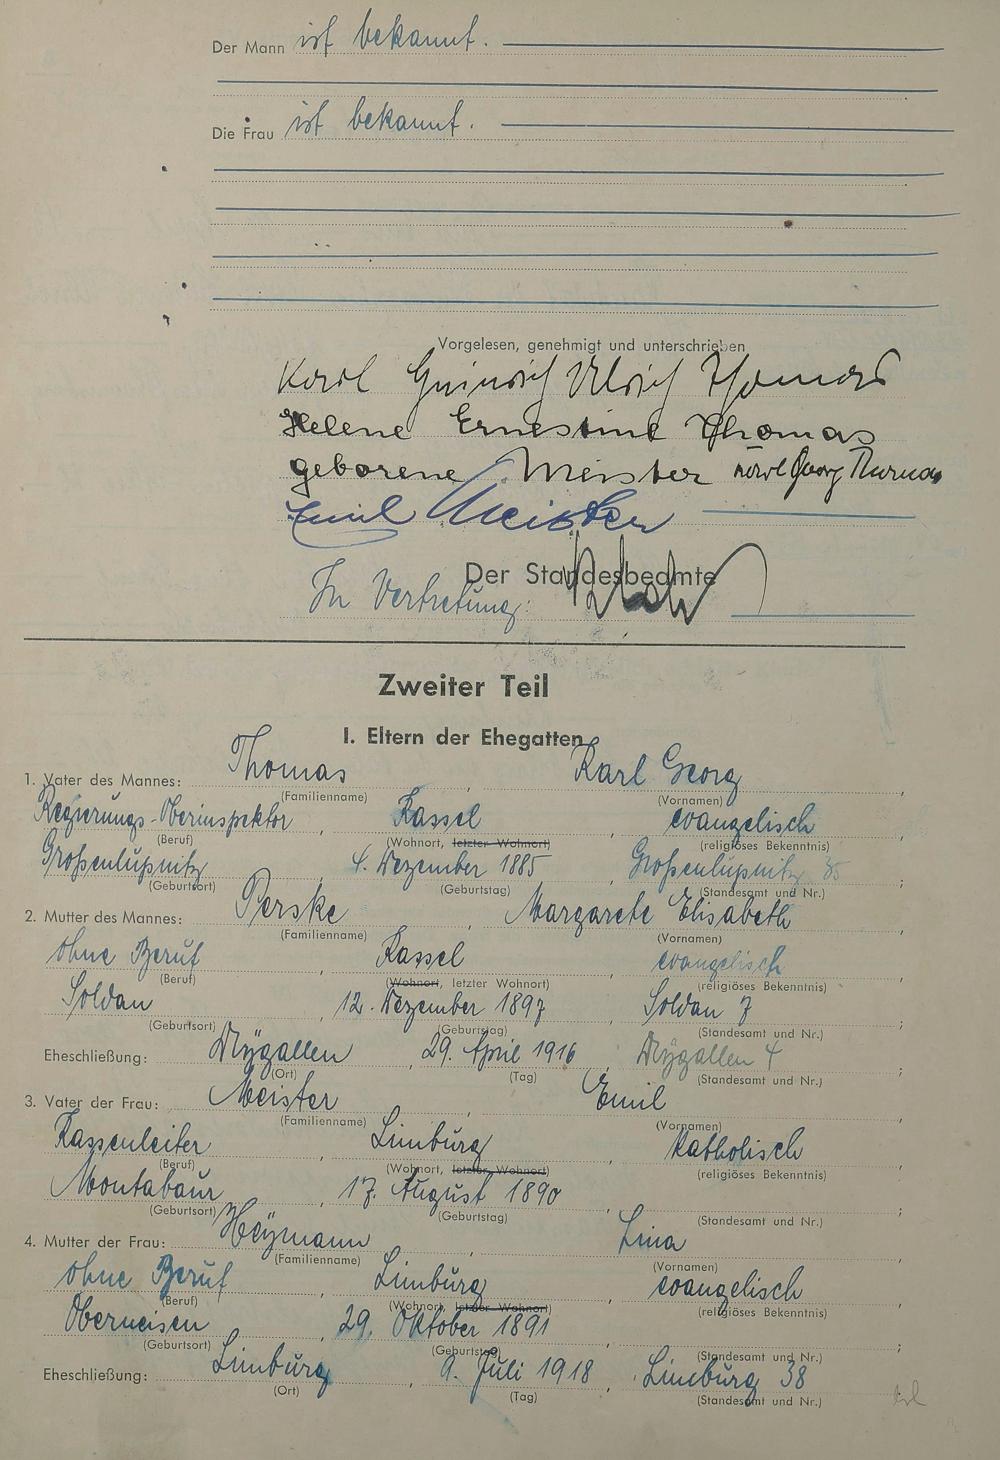 Der Mann ist bekannt.
Die Frau ist bekannt.
Vorgelesen, genehmigt und unterschrieben
Karl Heinrich Ulrich Thomas
Helene Ernestine Thomas
geborene Meister Karl Georg Thomas
Emil Meister
Der Standesbeamte
In Vertretung:
Zweiter Teil
I. Eltern der Ehegatten
1. Vater des Mannes: Thomas Karl Georg,
(Familienname) (Vornamen)
Regierungs-Oberinspektor, Kassel, evangelisch,
(Beruf) (Wohnort, letzter Wohnort) (religiöses Bekenntnis)
Großenlupnitz, 4. Dezember 1885, Großenlupnitz 35;
(Geburtsort) (Geburtstag) (Standesamt und Nr.)
2. Mutter des Mannes: Perske, Margarete Elisabeth,
(Familienname) (Vornamen)
ohne Beruf, Kassel, evangelisch,
(Beruf) (Wohnort, letzter Wohnort) (religiöses Bekenntnis)
Soldau, 12. Dezember 1897, Soldau 7;
(Geburtsort) (Geburtstag) (Standesamt und Nr.)
Eheschließung: Mygallen, 29. April 1916, Mygallen 4;
(Ort) (Tag) (Standesamt und Nr.)
3. Vater der Frau: Meister, Emil,
(Familienname) (Vornamen)
Kassenleiter, Limburg, katholisch,
(Beruf) (Wohnort, letzter Wohnort) (religiöses Bekenntnis)
Montabaur, 17. August 1890;
(Geburtsort) (Geburtstag) (Standesamt und Nr.)
4. Mutter der Frau: Heymann, Lina,
(Familienname) (Vornamen)
ohne Beruf, Limburg, evangelisch,
(Beruf) (Wohnort, letzter Wohnort) (religiöses Bekenntnis)
Oberneisen, 29. Oktober 1891;
(Geburtsort) (Geburtstag) (Standesamt und Nr.)
Eheschließung: Limburg, 9. Juli 1918, Limburg 38
(Ort) (Tag) (Standesamt und Nr.)